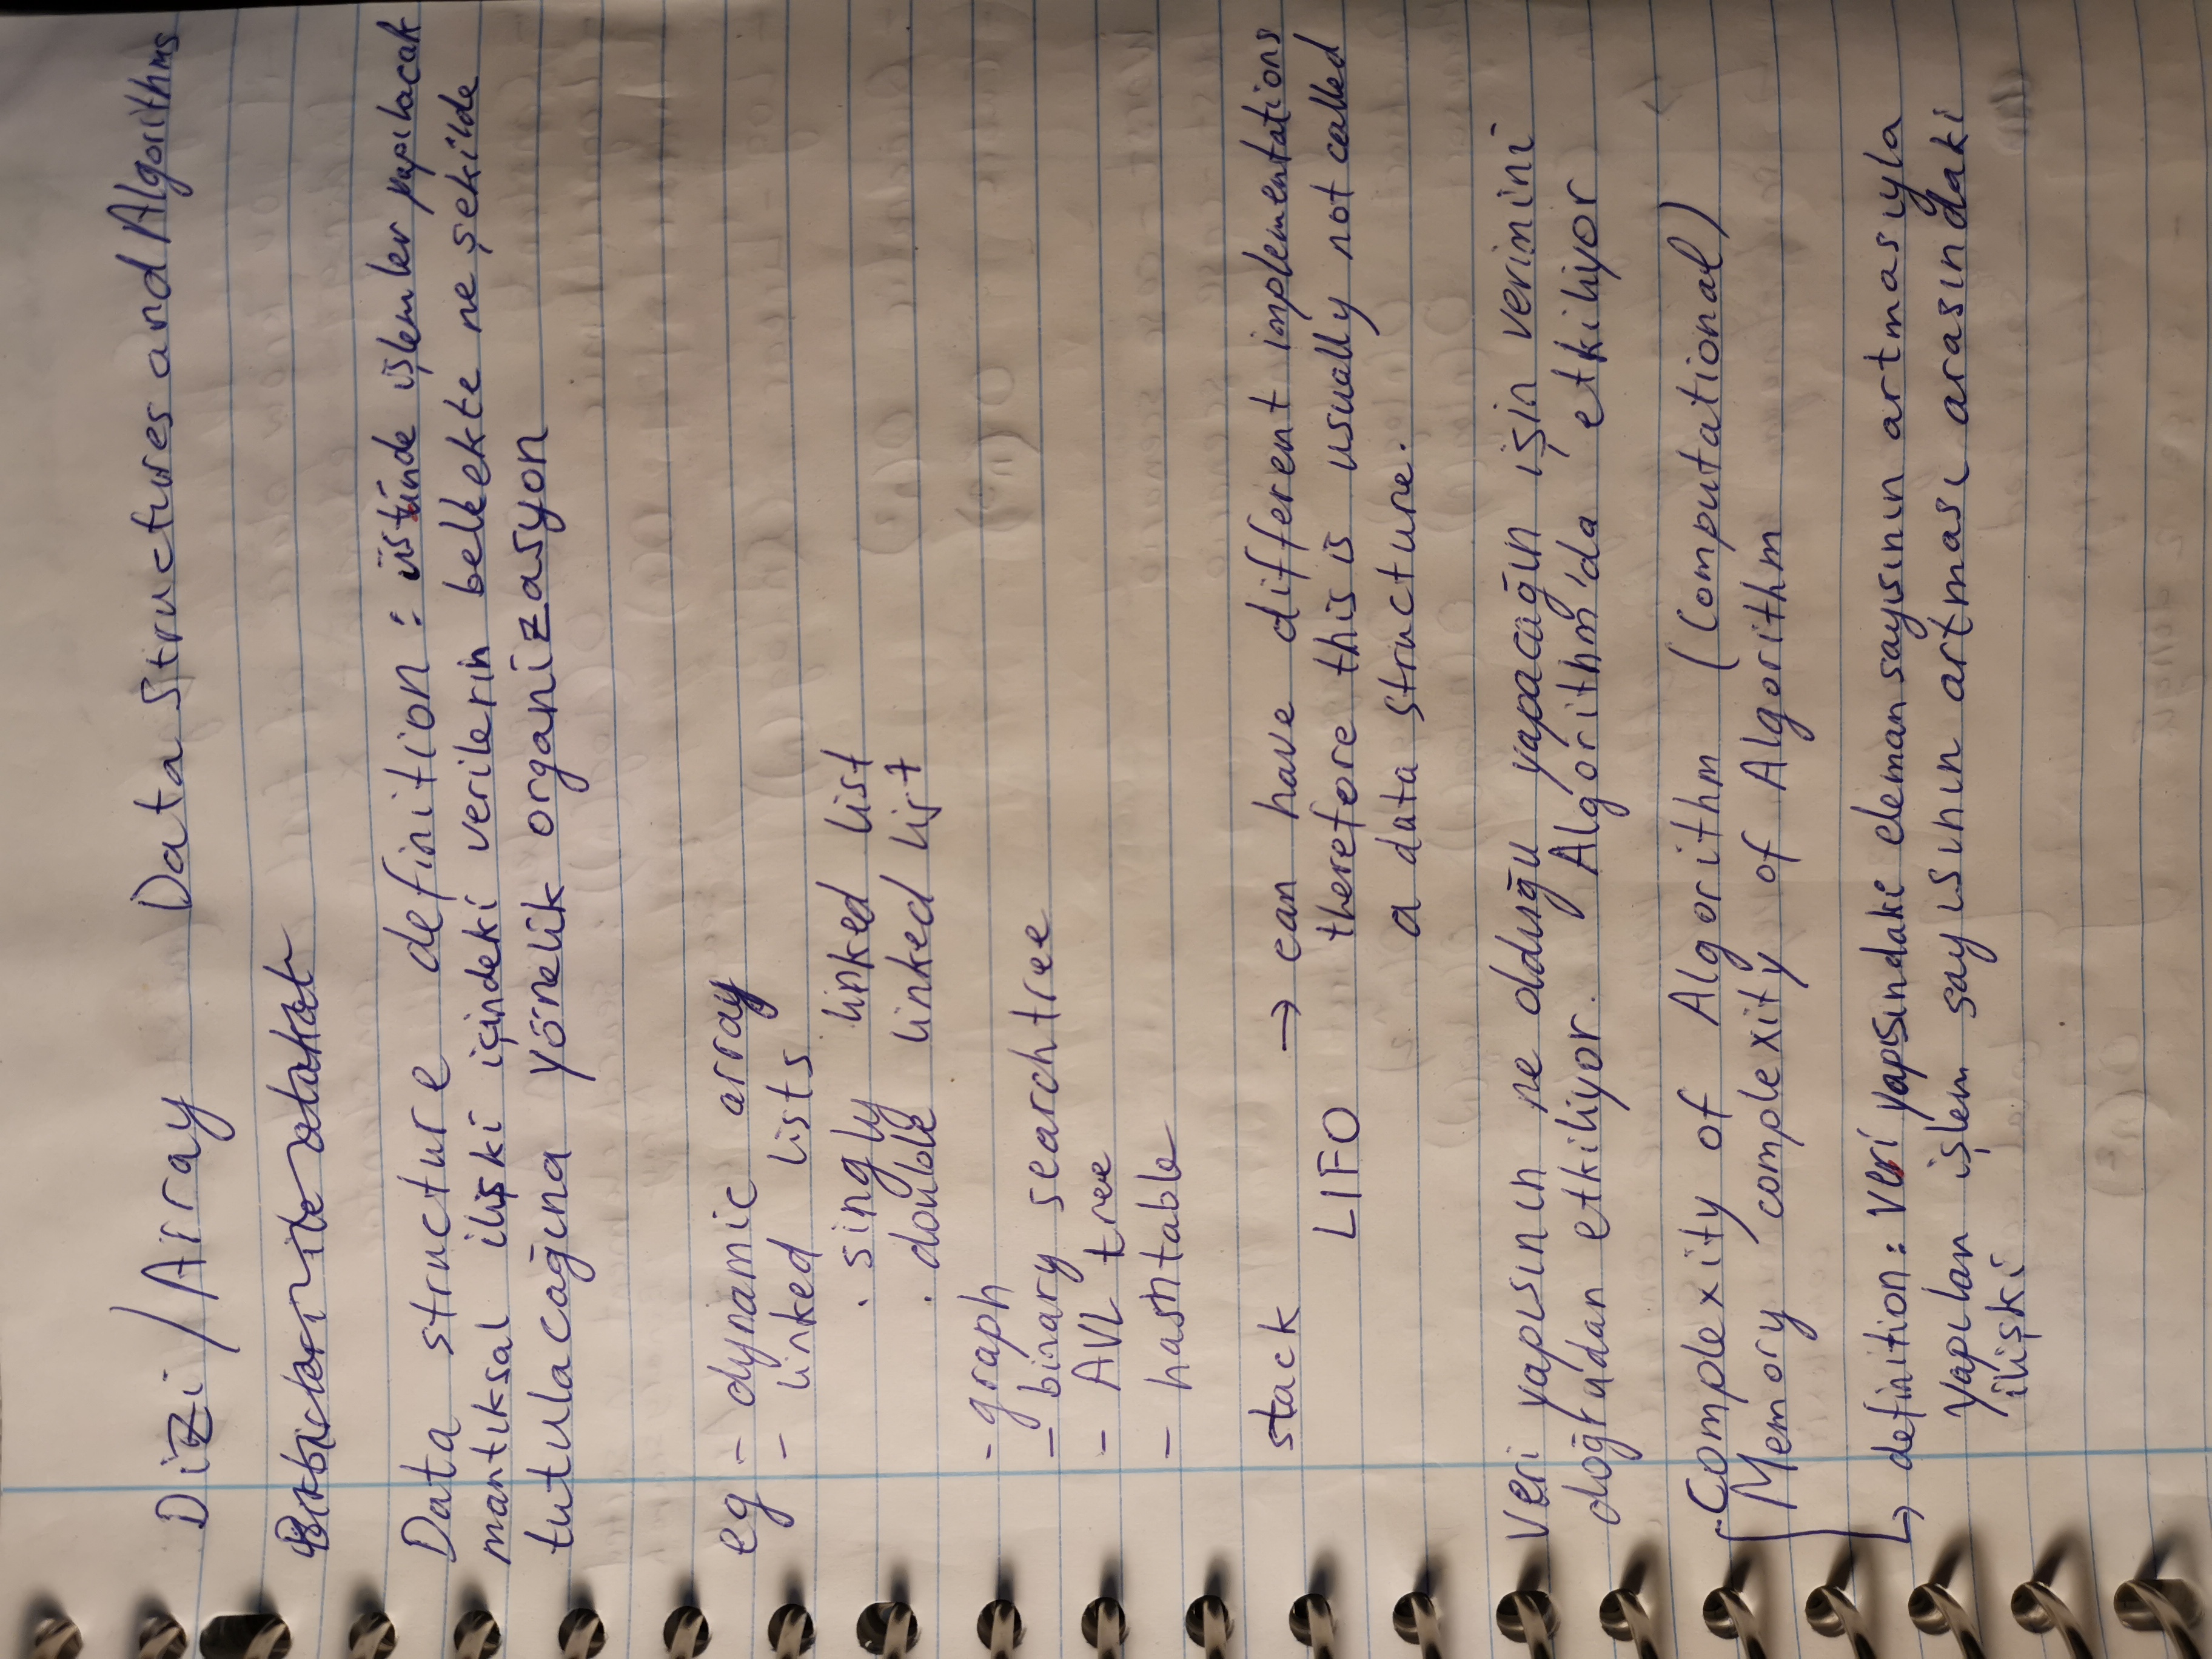 Dizi / Array Data Structures and Algorithms
Birbirleri ile alakal
Data structure definition : üstünde işlemler yapılacak
mantıksal ilişki içindeki verilerin bellekte ne şekilde
tutulacağına yönelik organizasyon
eg - dynamic array
- linked lists
. singly linked list
. double linked list
- graph
- binary search tree
- AVL tree
- hashtable
stack → can have different implementations
LIFO therefore this is usually not called
a data structure.
Veri yapısının ne olduğu yapacağın işin verimini
doğrudan etkiliyor. Algorithm'da etkiliyor
Complexity of Algorithm (Computational)
Memory complexity of Algorithm
↳ definition: Veri yapısındaki eleman sayısının artmasıyla
yapılan işlem sayısının artması arasındaki
ilişki